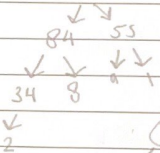 84 55
34 8 9 1
2